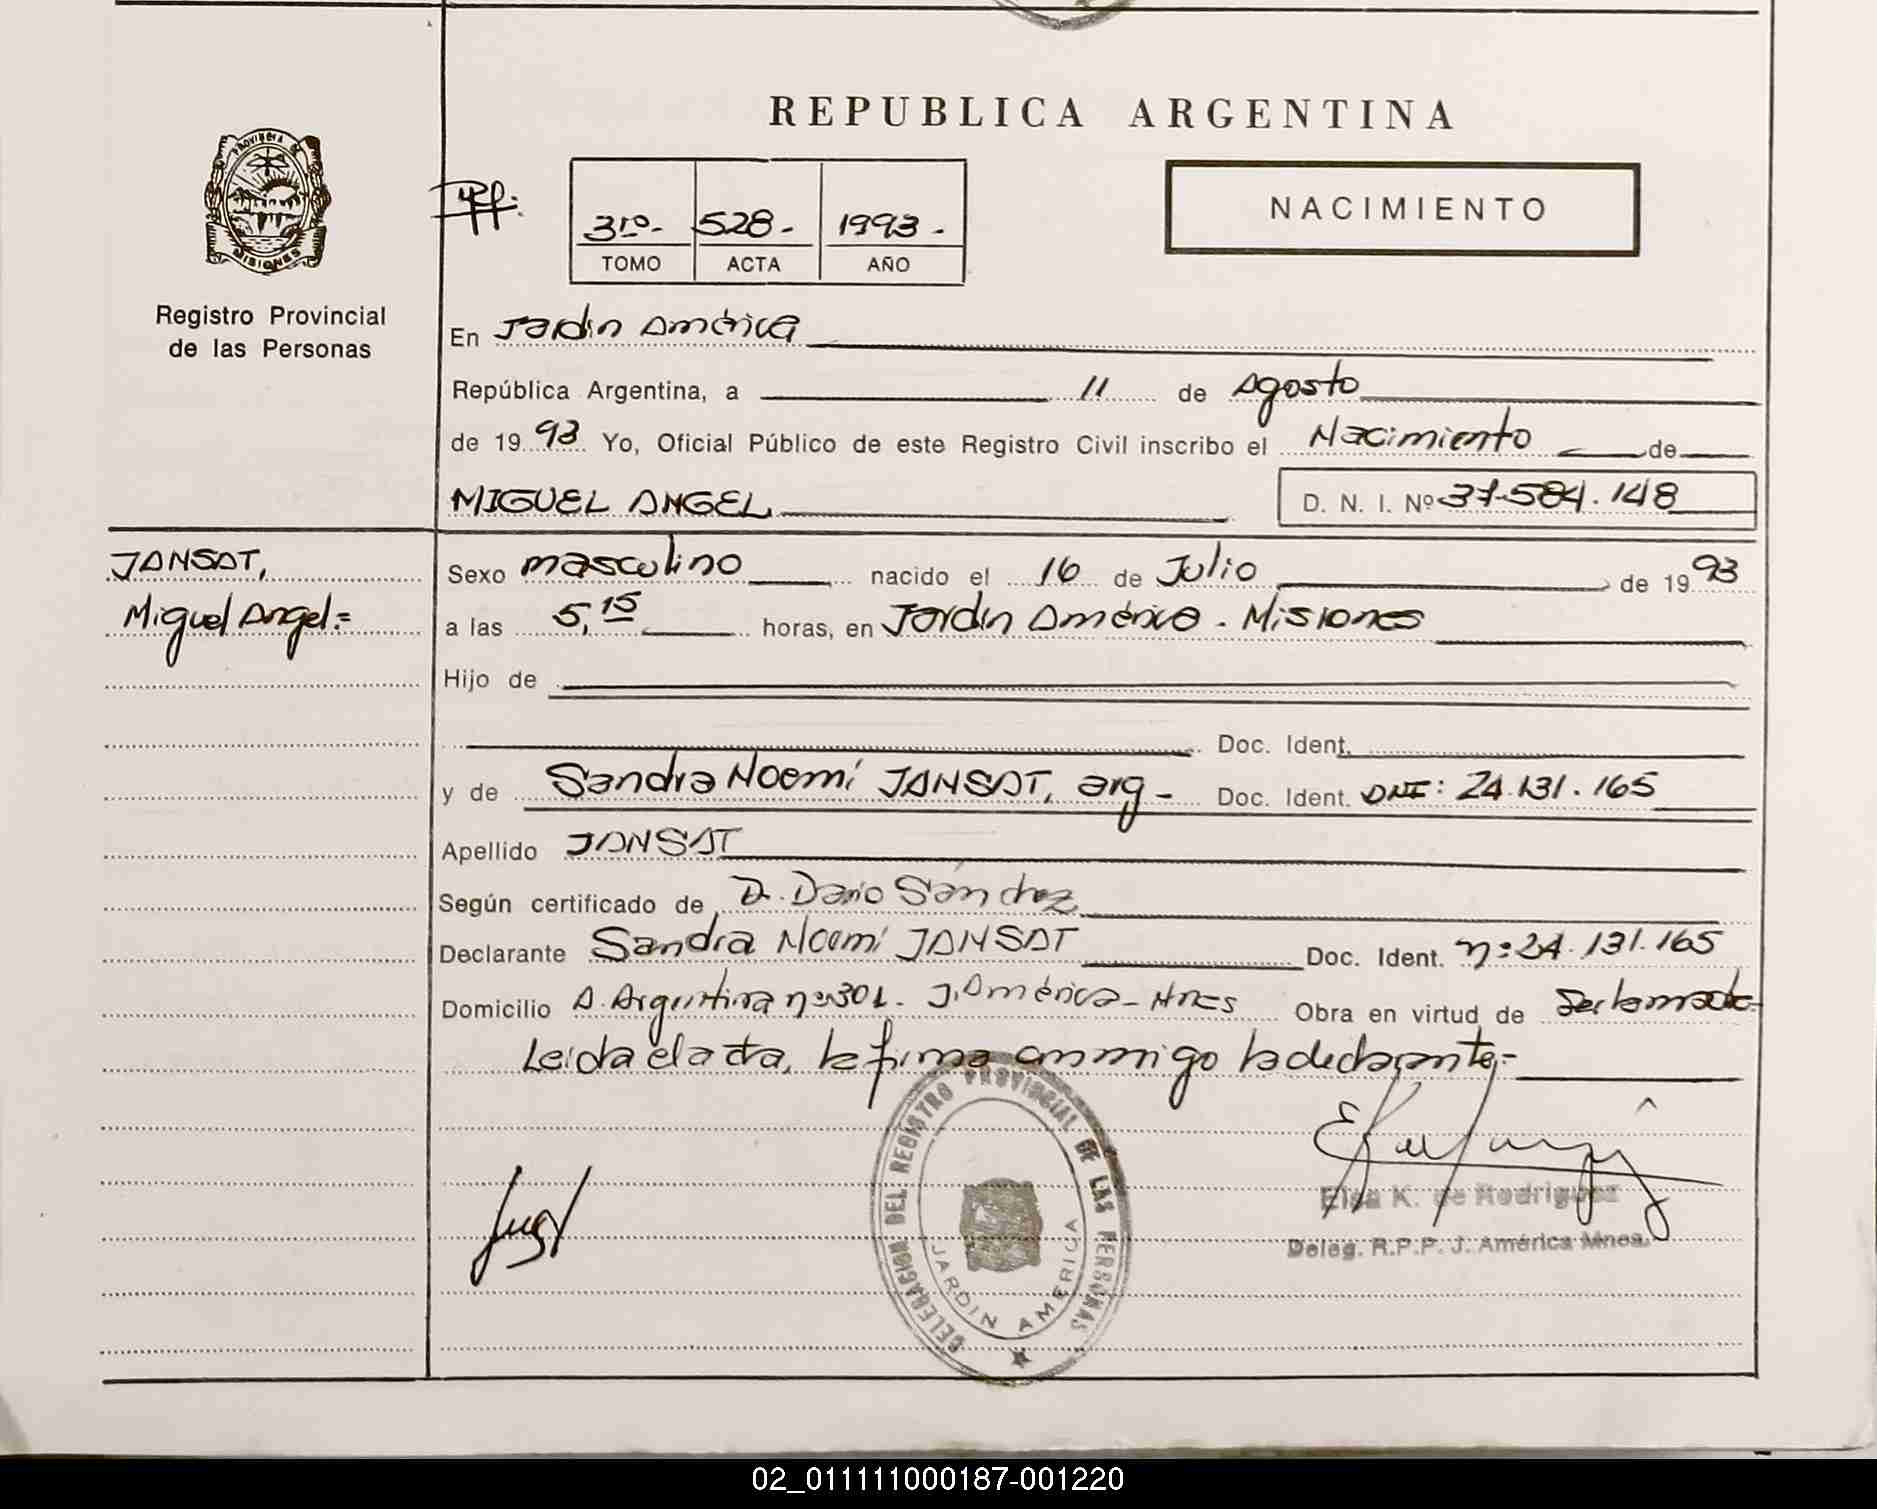 REPUBLICA ARGENTINA
PROVINCIA DE
MISIONES
Registro Provincial
de las Personas
3ro.- 528.- 1993.-
TOMO ACTA AÑO
NACIMIENTO
En Jardin América
República Argentina, a 11 de Agosto
de 19 93 Yo, Oficial Público de este Registro Civil inscribo el Nacimiento de
MIGUEL ANGEL D. N. I. Nº 37.584.148
JANSAT,
Miguel Angel.=
Sexo masculino nacido el 16 de Julio de 19 93
a las 5,15 horas, en Jardin América - Misiones
Hijo de
Doc. Ident.
y de Sandra Noemí JANSAT, arg- Doc. Ident. DNI: 24.131.165
Apellido JANSAT
Según certificado de D. Dario Sánchez
Declarante Sandra Noemí JANSAT Doc. Ident. nº 24.131.165
Domicilio A. Argentina nº 301. J. América - Mnes Obra en virtud de
Leida el acta, la firma conmigo la declarante.-
DELEGACION DEL REGISTRO PROVINCIAL DE LAS PERSONAS
JARDIN AMERICA
Elsa K. de Rodriguez
Deleg. R.P.P. J. América Mnes.
02_011111000187-001220